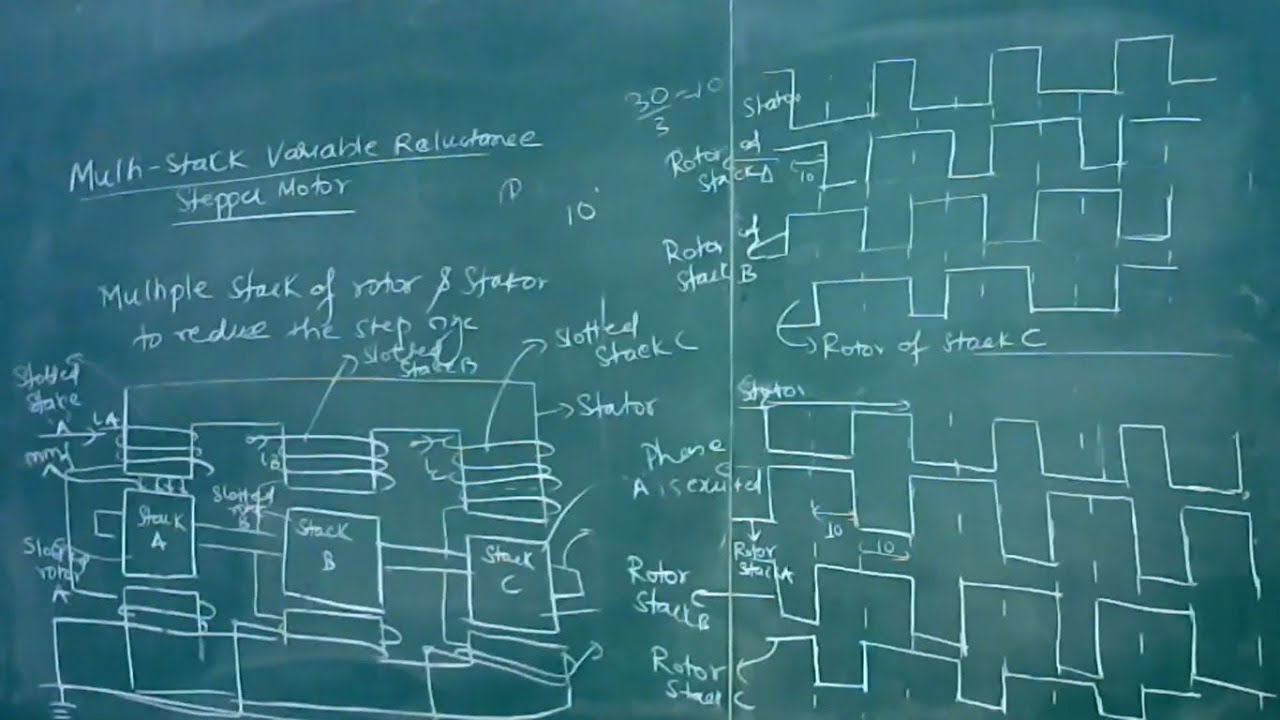 Multi-Stack Variable Reluctance
Stepper Motor
10°
Multiple Stack of rotor & Stator
to reduce the step
Slotted
Stack B
Slotted
Stack C
Stator
Slotted
'A'
iA
mmf
A
iB
Slotted
B
Stack
A
Stack
B
Stack
C
rotor
A
30/3 = 10
Stator
Rotor of
Stack A
10
Rotor of
Stack B
Rotor of Stack C
Stator
Phase
A is excited
10
10
Rotor
Stack A
Rotor
Stack B
Rotor
Stack C